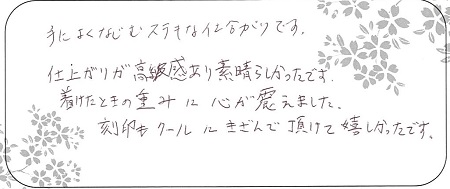 手によくなじむステキな仕上がりです。
仕上がりが高級感あり素晴らしかったです。
着けたときの重みに心が震えました。
刻印もクールにきざんで頂けて嬉しかったです。